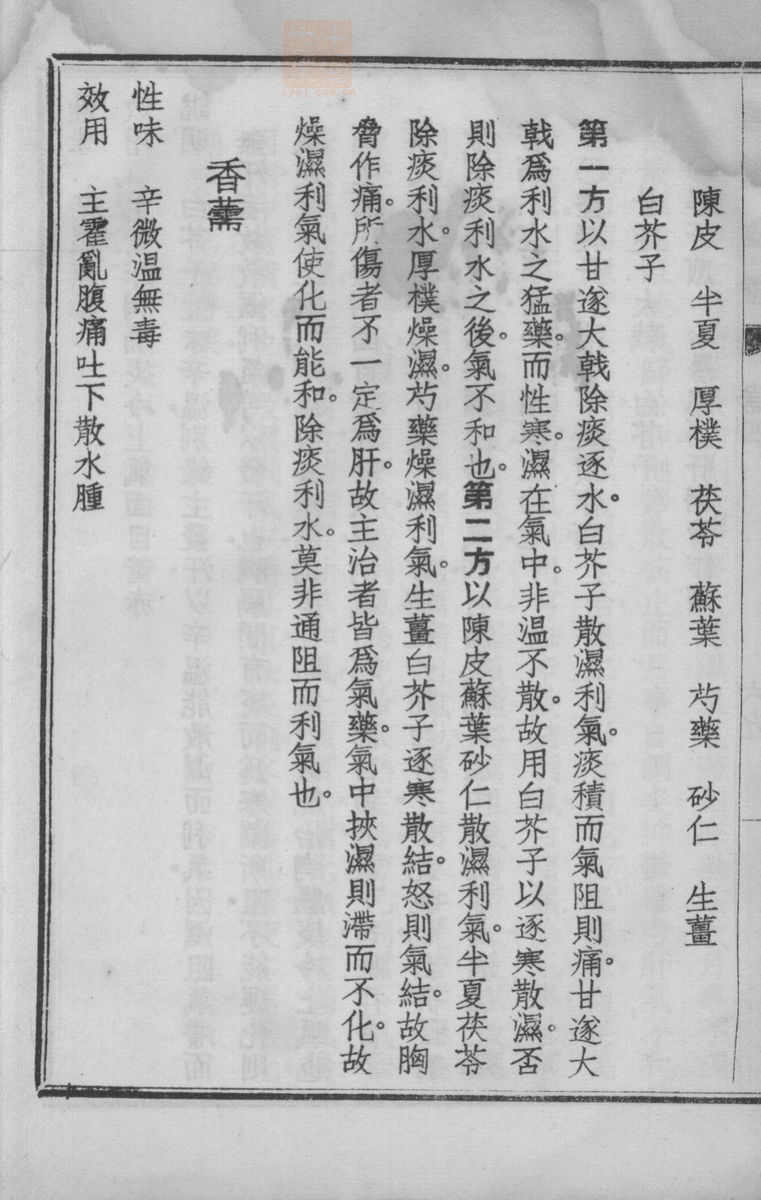 陳皮　半夏　厚樸　茯苓　蘇葉　芍藥　砂仁　生薑
白芥子
第一方以甘遂大戟除痰逐水。白芥子散濕利氣。痰積而氣阻則痛。甘遂大
戟爲利水之猛藥。而性寒。濕在氣中。非温不散。故用白芥子以逐寒散濕。否
則除痰利水之後。氣不和也。第二方以陳皮蘇葉砂仁散濕利氣。半夏茯苓
除痰利水。厚樸燥濕。芍藥燥濕利氣。生薑白芥子逐寒散結。怒則氣結。故胸
脅作痛。所傷者不一定爲肝。故主治者皆爲氣藥。氣中挾濕則滯而不化。故
燥濕利氣使化而能和。除痰利水。莫非通阻而利氣也。
香薷
性味　辛微温無毒
效用　主霍亂腹痛吐下散水腫